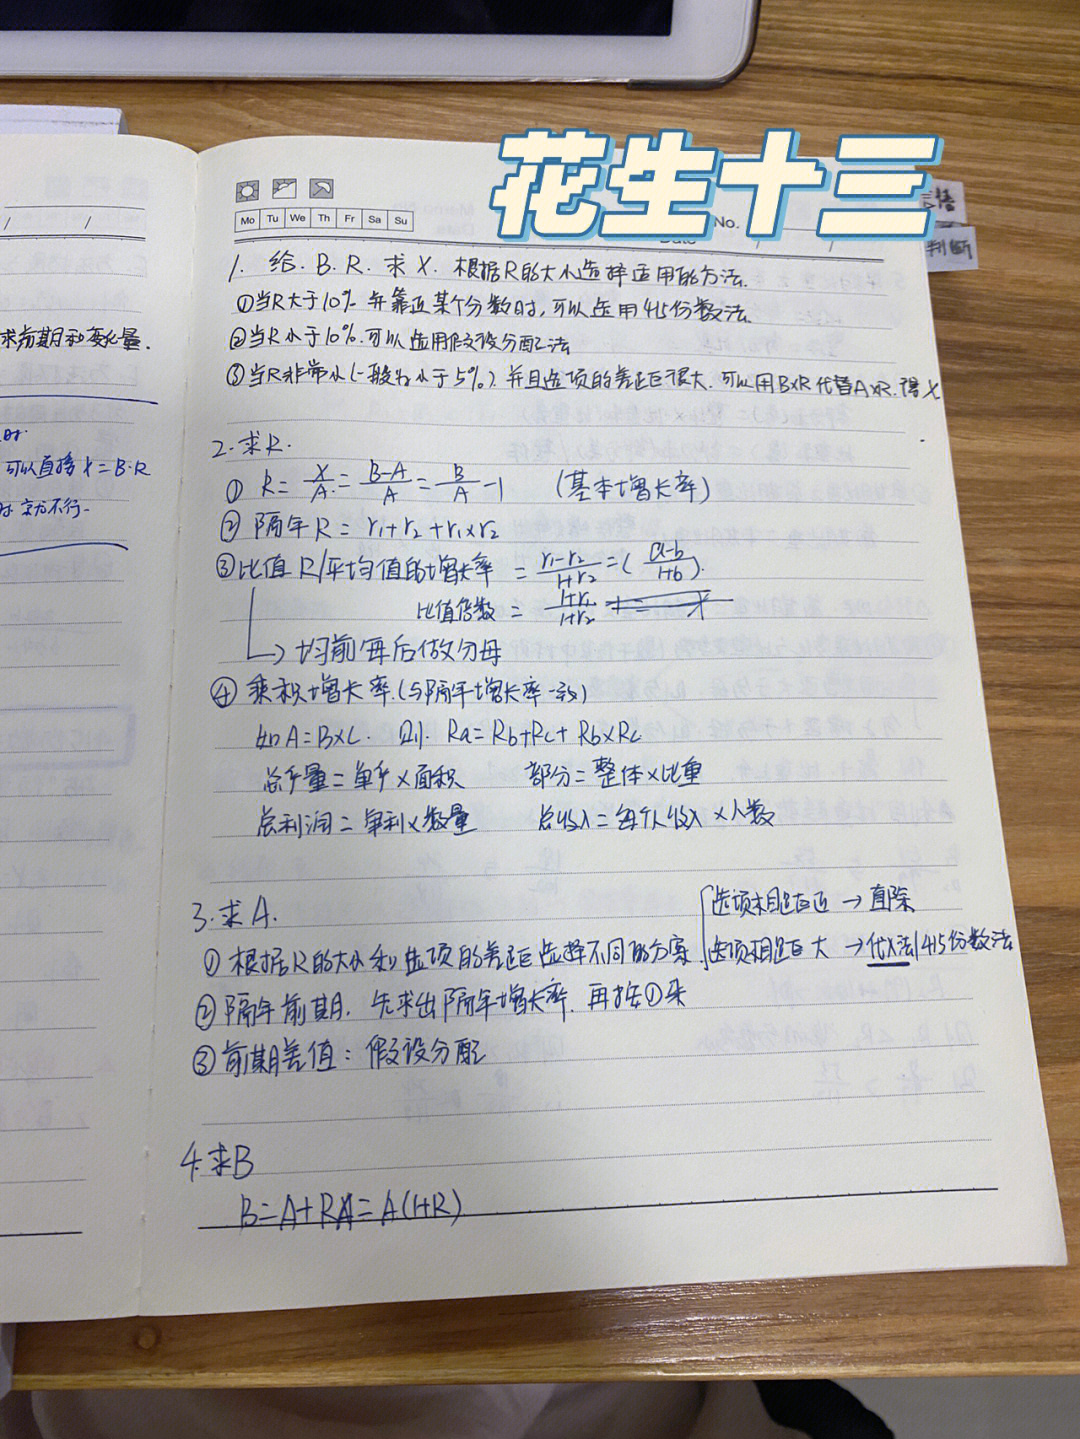 花生十三
言语
判断
Mo Tu We Th Fr Sa Su
No.
Date
1. 给.B.R.求X.根据R的大小选择适用的方法.
①当R大于10%并靠近某个分数时,可以适用415份数法.
②当R小于10%.可以适用假设分配法
③当R非常小(一般为小于5%).并且选项的差距很大.可以用B×R代替A×R.得X
求前期和变化量.
可以直接X=B·R
时就不行.
2.求R.
① R= X/A = B-A/A = B/A -1 (基本增长率)
② 隔年R = r₁+r₂+r₁×r₂
③比值R/平均值的增长率 = r₁-r₂/1+r₂ =( a-b/1+b ).
比值倍数 = 1+r₁/1+r₂
↳均前每后做分母
④ 乘积增长率.(与隔年增长率一致)
如A=B×C. 则. Ra=Rb+Rc+Rb×Rc
总产量=单产×面积 部分=整体×比重
总利润=单利×数量 总收入=每个人收入×人数
3.求A.
①根据R的大小和选项的差距选择不同的方案. { 选项相距近→直除
选项相距大→代入法/415份数法
②隔年前期.先求出隔年增长率.再按①求
③前期差值:假设分配
4.求B
B=A+RA=A(1+R)